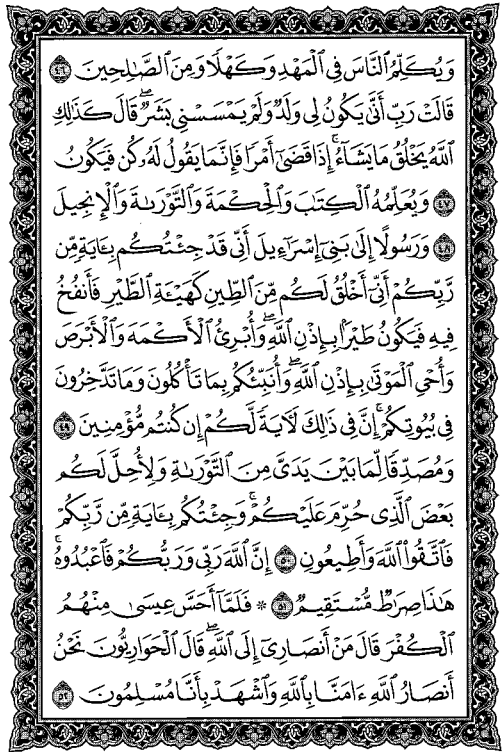 وَيُكَلِّمُ ٱلنَّاسَ فِي ٱلْمَهْدِ وَكَهْلًا وَمِنَ ٱلصَّٰلِحِينَ ٤٦
قَالَتْ رَبِّ أَنَّىٰ يَكُونُ لِي وَلَدٌ وَلَمْ يَمْسَسْنِي بَشَرٌۖ قَالَ كَذَٰلِكِ
ٱللَّهُ يَخْلُقُ مَا يَشَآءُۚ إِذَا قَضَىٰٓ أَمْرًا فَإِنَّمَا يَقُولُ لَهُۥ كُن فَيَكُونُ
٤٧ وَيُعَلِّمُهُ ٱلْكِتَٰبَ وَٱلْحِكْمَةَ وَٱلتَّوْرَىٰةَ وَٱلْإِنجِيلَ
٤٨ وَرَسُولًا إِلَىٰ بَنِيٓ إِسْرَٰٓءِيلَ أَنِّي قَدْ جِئْتُكُم بِـَٔايَةٍ مِّن
رَّبِّكُمْ أَنِّيٓ أَخْلُقُ لَكُم مِّنَ ٱلطِّينِ كَهَيْـَٔةِ ٱلطَّيْرِ فَأَنفُخُ
فِيهِ فَيَكُونُ طَيْرًۢا بِإِذْنِ ٱللَّهِۖ وَأُبْرِئُ ٱلْأَكْمَهَ وَٱلْأَبْرَصَ
وَأُحْيِ ٱلْمَوْتَىٰ بِإِذْنِ ٱللَّهِۖ وَأُنَبِّئُكُم بِمَا تَأْكُلُونَ وَمَا تَدَّخِرُونَ
فِي بُيُوتِكُمْۚ إِنَّ فِي ذَٰلِكَ لَأٓيَةً لَّكُمْ إِن كُنتُم مُّؤْمِنِينَ ٤٩
وَمُصَدِّقًا لِّمَا بَيْنَ يَدَيَّ مِنَ ٱلتَّوْرَىٰةِ وَلِأُحِلَّ لَكُم
بَعْضَ ٱلَّذِي حُرِّمَ عَلَيْكُمْۚ وَجِئْتُكُم بِـَٔايَةٍ مِّن رَّبِّكُمْ
فَٱتَّقُوا۟ ٱللَّهَ وَأَطِيعُونِ ٥٠ إِنَّ ٱللَّهَ رَبِّي وَرَبُّكُمْ فَٱعْبُدُوهُۚ
هَٰذَا صِرَٰطٌ مُّسْتَقِيمٌ ٥١ ۞ فَلَمَّآ أَحَسَّ عِيسَىٰ مِنْهُمُ
ٱلْكُفْرَ قَالَ مَنْ أَنصَارِيٓ إِلَى ٱللَّهِۖ قَالَ ٱلْحَوَارِيُّونَ نَحْنُ
أَنصَارُ ٱللَّهِ ءَامَنَّا بِٱللَّهِ وَٱشْهَدْ بِأَنَّا مُسْلِمُونَ ٥٢